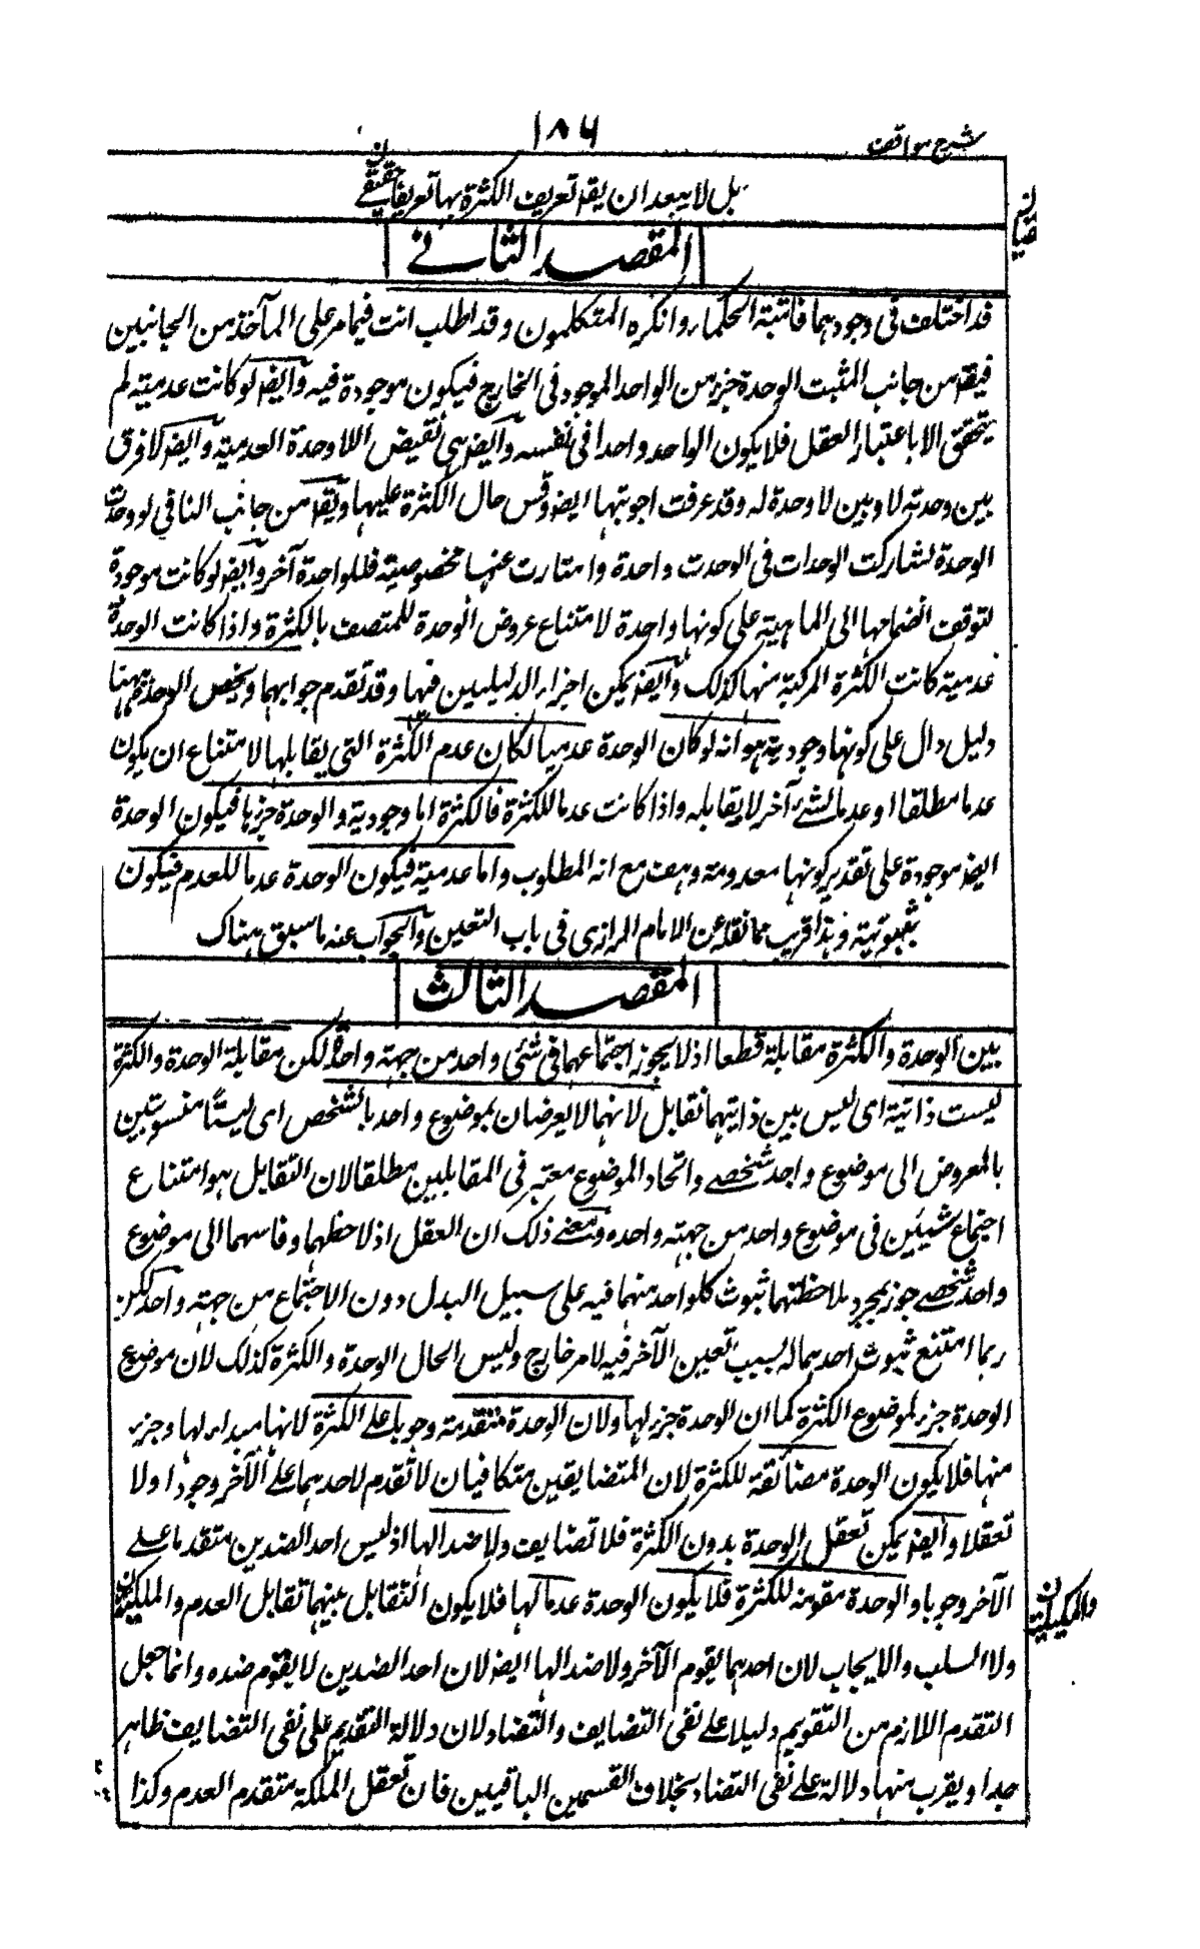 شرح مواقف
١٨٦
بل لا يبعد ان يقم تعريف الكثرة بها تعريفا حقيقي
المقصد الثاني
قد اختلف فى وجودهما فاثبته الحكماء وانكره المتكلمون وقد اطلب انت فيما مر على المآخذ من الجانبين
فيقم من جانب المثبت الوحدة جزء من الواحد الموجود فى الخارج فيكون موجودة فيه وايضم لو كانت عدمية لم
يتحقق الا باعتبار العقل فلا يكون الواحد واحدا فى نفسه وايضم هى نقيض اللاوحدة العدمية وايضم لا فرق
بين وحدته لا وبين لا وحدة له وقد عرفت اجوبتها ايضم وقس حال الكثرة عليها ويقم من جانب النافي لو وجدت
الوحدة لشاركت الوحدات فى الوحدت واحدة وامتازت عنها بخصوصية فللواحدة آخر وايضم لو كانت موجودة
لتوقف انضمامها الى الماهية على كونها واحدة لامتناع عروض الوحدة للمتصف بالكثرة واذا كانت الوحدة
عدمية كانت الكثرة المركبة منها كذلك وايضم يمكن اجراء الدليلين فيها وقد تقدم جوابهما ويخص الوحدة ههنا
دليل دال على كونها وجودية هو انه لو كان الوحدة عدميا لكان عدم الكثرة التى يقابلها لامتناع ان يكون
عدما مطلقا او عدما لشئ آخر لا يقابله واذا كانت عدما للكثرة فالكثرة اما وجودية والوحدة جزءها فيكون الوحدة
ايضم موجودة على تقدير كونها معدومة وهف مع انه المطلوب واما عدمية فيكون الوحدة عدما للعدم فيكون
ثبوتية وهذا قريب مما نقله عن الامام الرازى فى باب التعين والجواب عنه ما سبق هناك
المقصد الثالث
بين الوحدة والكثرة مقابلة قطعا اذ لا يجوز اجتماعهما فى شئى واحد من جهته واحدة لكن مقابلة الوحدة والكثرة
ليست ذاتية اى ليس بين ذاتيهما تقابل لانهما لا يعرضان بموضوع واحد بالشخص اى ليستا منسوبتين
بالعروض الى موضوع واحد شخصے واتحاد الموضوع معتبر فى المقابلين مطلقا لان التقابل هو امتناع
اجتماع شيئين فى موضوع واحد من جهته واحده ومعنے ذلك ان العقل اذ لاحظهما وقاسهما الى موضوع
واحد شخصے جوز بمجرد ملاحظتهما ثبوث كلو احد منهما فيه على سبيل البدل دون الاجتماع من جهته واحد لكن
ربما امتنع ثبوث احدهما له بسبب تعين الآخر فيه لامر خارج وليس الحال الوحدة والكثرة كذلك لان موضوع
الوحدة جزء لموضوع الكثرة كما ان الوحدة جزء لها ولان الوحدة متقدمة وجوبا على الكثرة لانها مبدا لها وجزء
منها فلا يكون الوحدة مضائقة للكثرة لان المتضايقين متكافيان لا تقدم لاحدهما على الآخر وجودا ولا
تعقلا وايضم يمكن تعقل الوحدة بدون الكثرة فلا تضايف ولا ضد الها اذ ليس احد الضدين متقدما علے
الآخر وجوبا والوحدة مقومة للكثرة فلا يكون الوحدة عدما لها فلا يكون التقابل بينهما تقابل العدم والملكة
ولا السلب والايجاب لان احدهما يقوم الآخر ولا ضد الها ايضم لان احد الضدين لا يقوم ضده وانما جعل
التقدم اللازم من التقويم دليلا علے نفى التضايف والتضاد لان دلالة التقديم على نفى التضايف ظاهر
جدا ويقرب منها دلالة علے نفى التضاد بخلاف القسمين الباقيين فان تعقل الملكة متقدم العدم وكذا